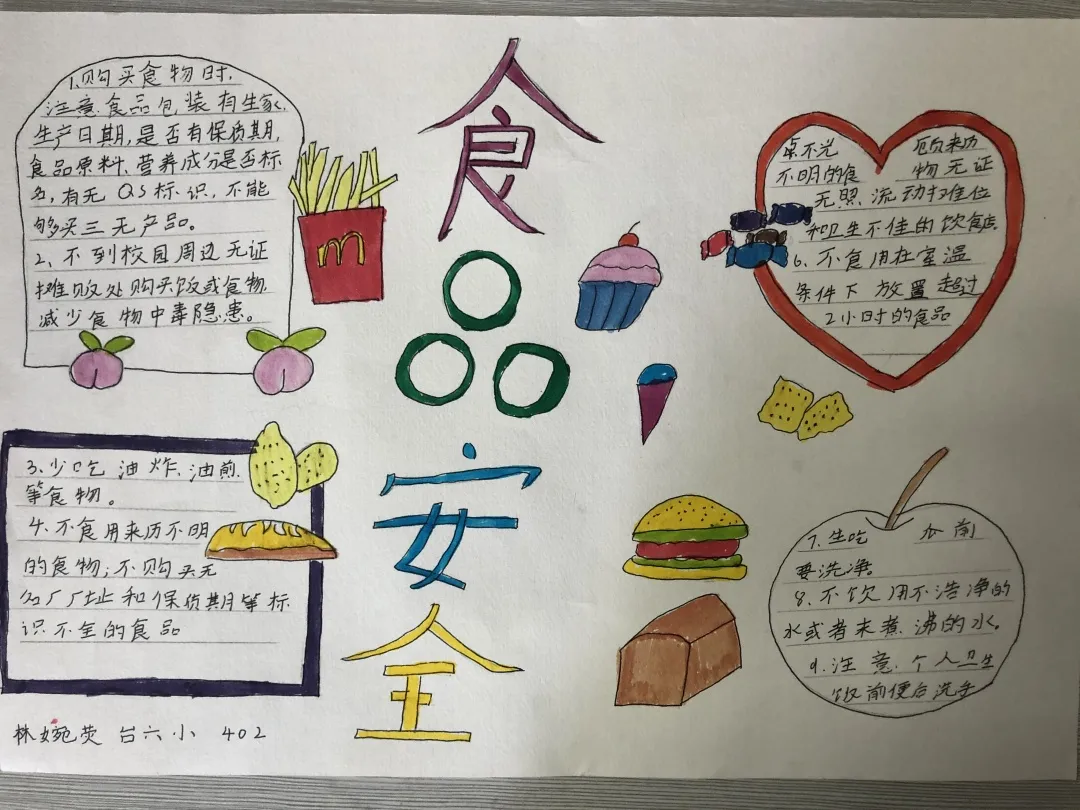 食
品
安
全
1.购买食物时,
注意食品包装有生家,
生产日期,是否有保质期,
食品原料,营养成分是否标
名,有无QS标识,不能
够买三无产品。
2、不到校园周边无证
摊贩处购买饭或食物,
减少食物中毒隐患。
m
3、少吃油炸、油煎,
等食物。
4、不食用来历不明
的食物;不购买无
名厂厂址和保质期等标
识不全的食品
不光 顾来历
不明的食 物无证
无照流动摊位
和卫生不佳的饮食店
6、不食用在室温
条件下放置超过
2小时的食品
7、生吃 瓜前
要洗净。
8、不饮用不洁净的
水或者未煮沸的水。
9、注意个人卫生
饭前便后洗手
林婉荧 台六小 402